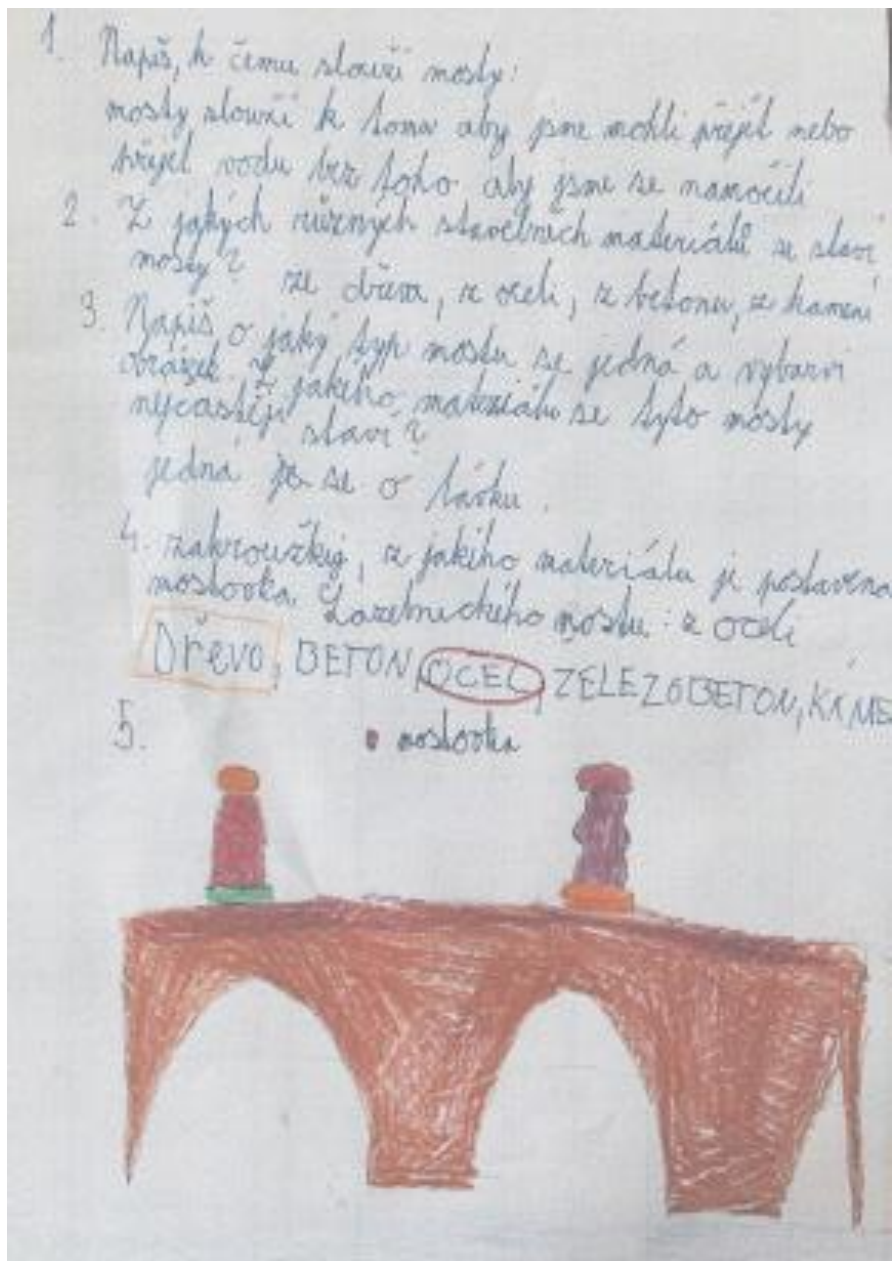 1. Napiš, k čemu slouží mosty:
mosty slouží k tomu aby jsme mohli přejet nebo
přejít vodu bez toho aby jsme se namočili
2. Z jakých různych stavebních materiálů se staví
mosty? ze dřeva, z oceli, z betonu, z kamení
3. Napiš o jaký typ mostu se jedná a vybarvi
obrázek. Z jakého materiálu se tyto mosty
nejčastěji staví?
jedná se o lávku.
4. zakroužkuj, z jakého materiálu je postavena
mostovka Lazebnického mostu: z oceli
Dřevo, BETON, OCEL, ŽELEZOBETON, KÁME
5. mostovka